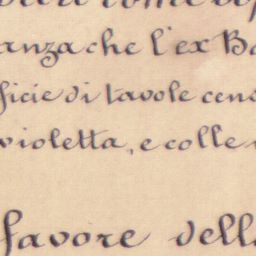 anza che l'ex Ba
ficie di tavole cens
violetta, e colle
favore dell